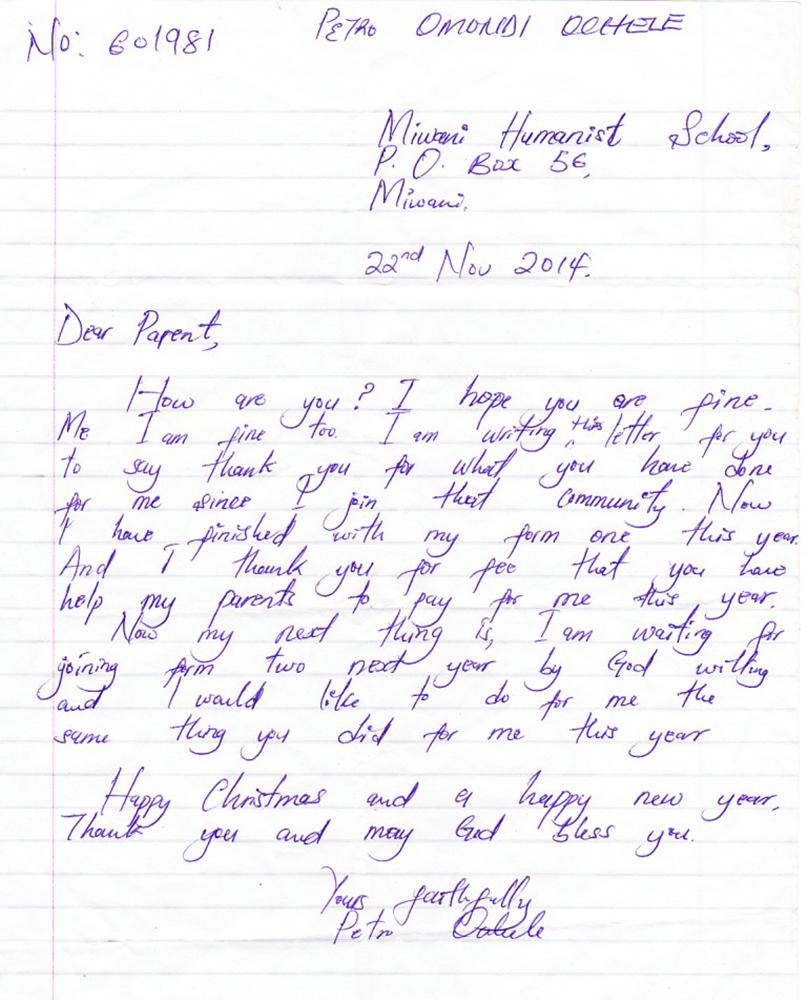 No: 601981
PETRO OMONDI OCHELE
Miwani Humanist School,
P. O. Box 56,
Miwani.
22nd Nov 2014.
Dear Parent,
How are you? I hope you are fine.
Me I am fine too. I am writing this letter for you
to say thank you for what you have done
for me since I join that community. Now
I have finished with my form one this year.
And I thank you for fee that you have
help my parents to pay for me this year.
Now my next thing is, I am waiting for
joining form two next year by God willing
and I would like to do for me the
same thing you did for me this year
Happy Christmas and a happy new year.
Thank you and may God bless you.
Yours faithfully
Petro